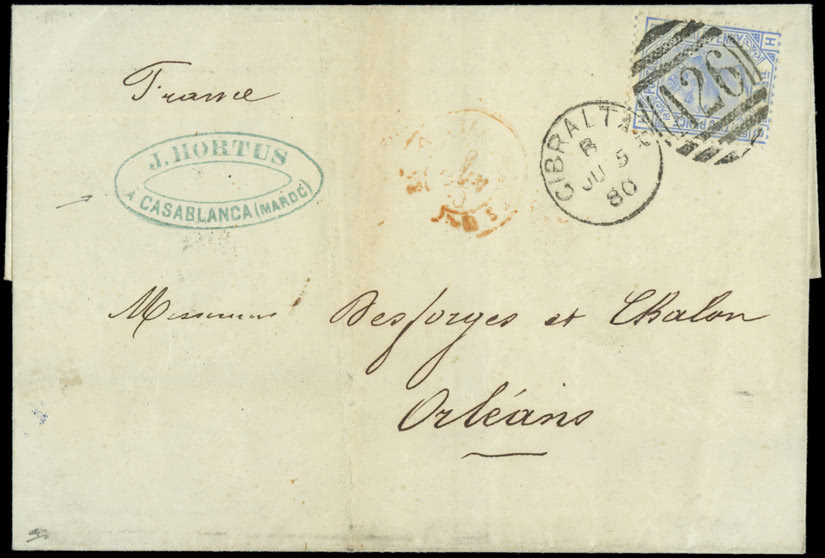 France
J. HORTUS
A CASABLANCA (MAROC)
GIBRALTAR
B
JU 5
80
A26
H
Messieurs Desforges et Chalon
Orléans